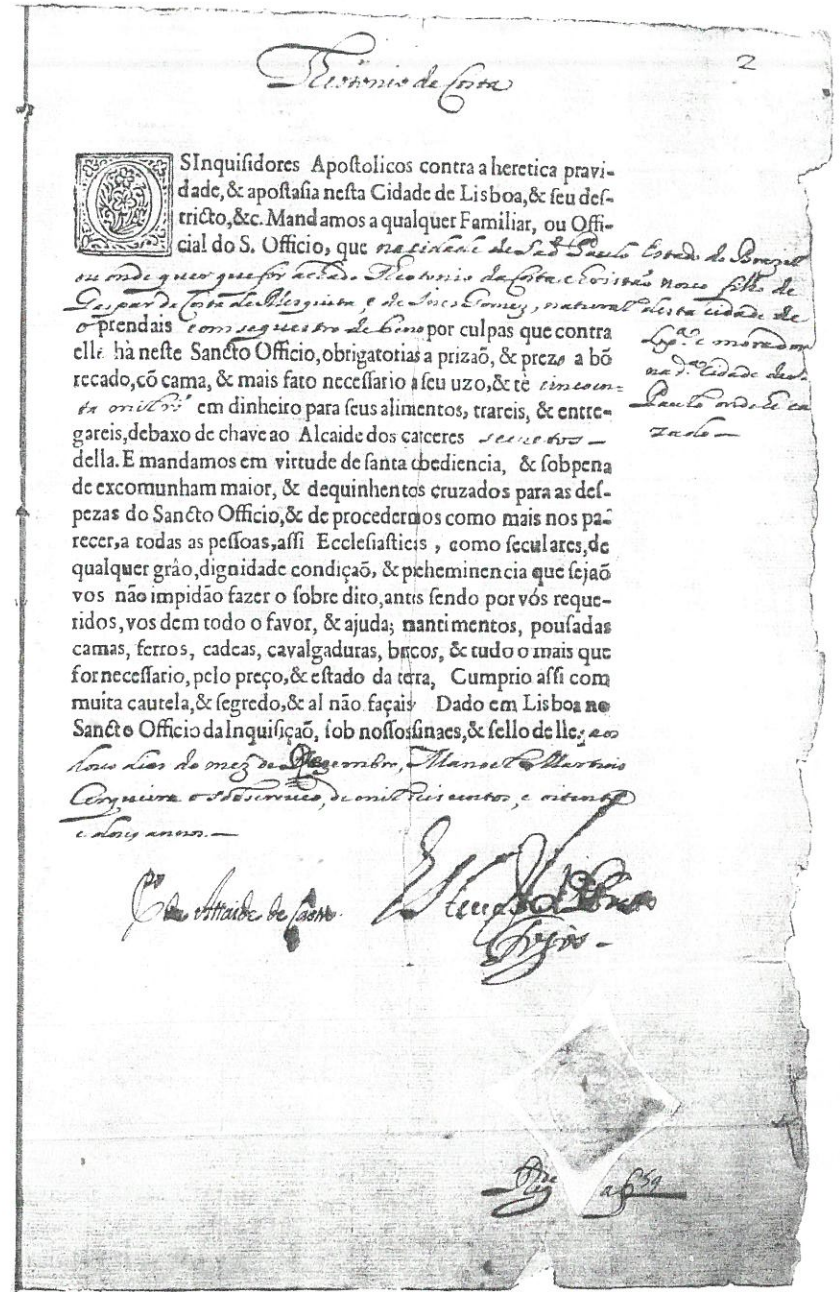 Theotonio da Costa
2
OS Inquisidores Apostolicos contra a heretica pravi-
dade, & apostasia nesta Cidade de Lisboa, & seu des-
tricto, &c. Mandamos a qualquer Familiar, ou Offi-
cial do S. Officio, que na cidade de Saõ Paulo Estado do Brazil
ou onde quer que for achado Theotonio da Costa christaõ novo filho de
Gaspar da Costa de Mesquita, e de Ines Gomez, natural desta cidade de
Lxª. e morador
na dª. Cidade de S.
Paulo onde he ca
zado —
o prendais com sequestro de bens por culpas que contra
elle hà neste Sancto Officio, obrigatorias a prizaõ, & prezo a bõ
recado, cõ cama, & mais fato necessario a seu uzo, & tè sincoen-
ta mil rs em dinheiro para seus alimentos, trareis, & entre-
gareis, debaxo de chave ao Alcaide dos carceres secretos —
della. E mandamos em virtude de santa obediencia, & sobpena
de excomunham maior, & dequinhentos cruzados para as des-
pezas do Sancto Officio, & de procedermos como mais nos pa-
recer, a todas as pessoas, assi Ecclesiasticis, como seculares, de
qualquer grâo, dignidade condiçaõ, & preheminencia que sejaõ
vos não impidão fazer o sobre dito, antis sendo por vós reque-
ridos, vos dem todo o favor, & ajuda; mantimentos, pousadas
camas, ferros, cadeas, cavalgaduras, barcos, & tudo o mais que
for necessario, pelo preço, & estado da terra, Cumprio assi com
muita cautela, & segredo, & al não façais Dado em Lisboa no
Sancto Officio da Inquisiçaõ, sob nossos sinaes, & sello delle; aos
dous dias do mez de Dezembro, Manoel Martins
Cerqueira o sobscreveo, de mil seis centos, e oitenta
e dous annos. —
Pº de Attaide de Castro
Estevaõ de Britto
Foyos —